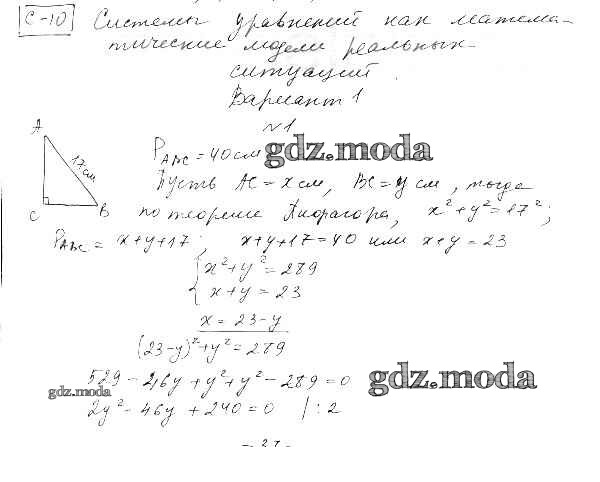 С-10 Системы уравнений как матема-
тические модели реальных
ситуаций
Вариант 1
№1
A
17 см
C
B
P_ABC = 40 см
gdz.moda
Пусть AC = x см, BC = y см, тогда
по теореме Пифагора, x² + y² = 17²;
P_ABC = x + y + 17, x + y + 17 = 40 или x + y = 23
{ x² + y² = 289
{ x + y = 23
x = 23 - y
(23 - y)² + y² = 289
529 - 46y + y² + y² - 289 = 0
gdz.moda
gdz.moda
2y² - 46y + 240 = 0 | : 2
- 27 -